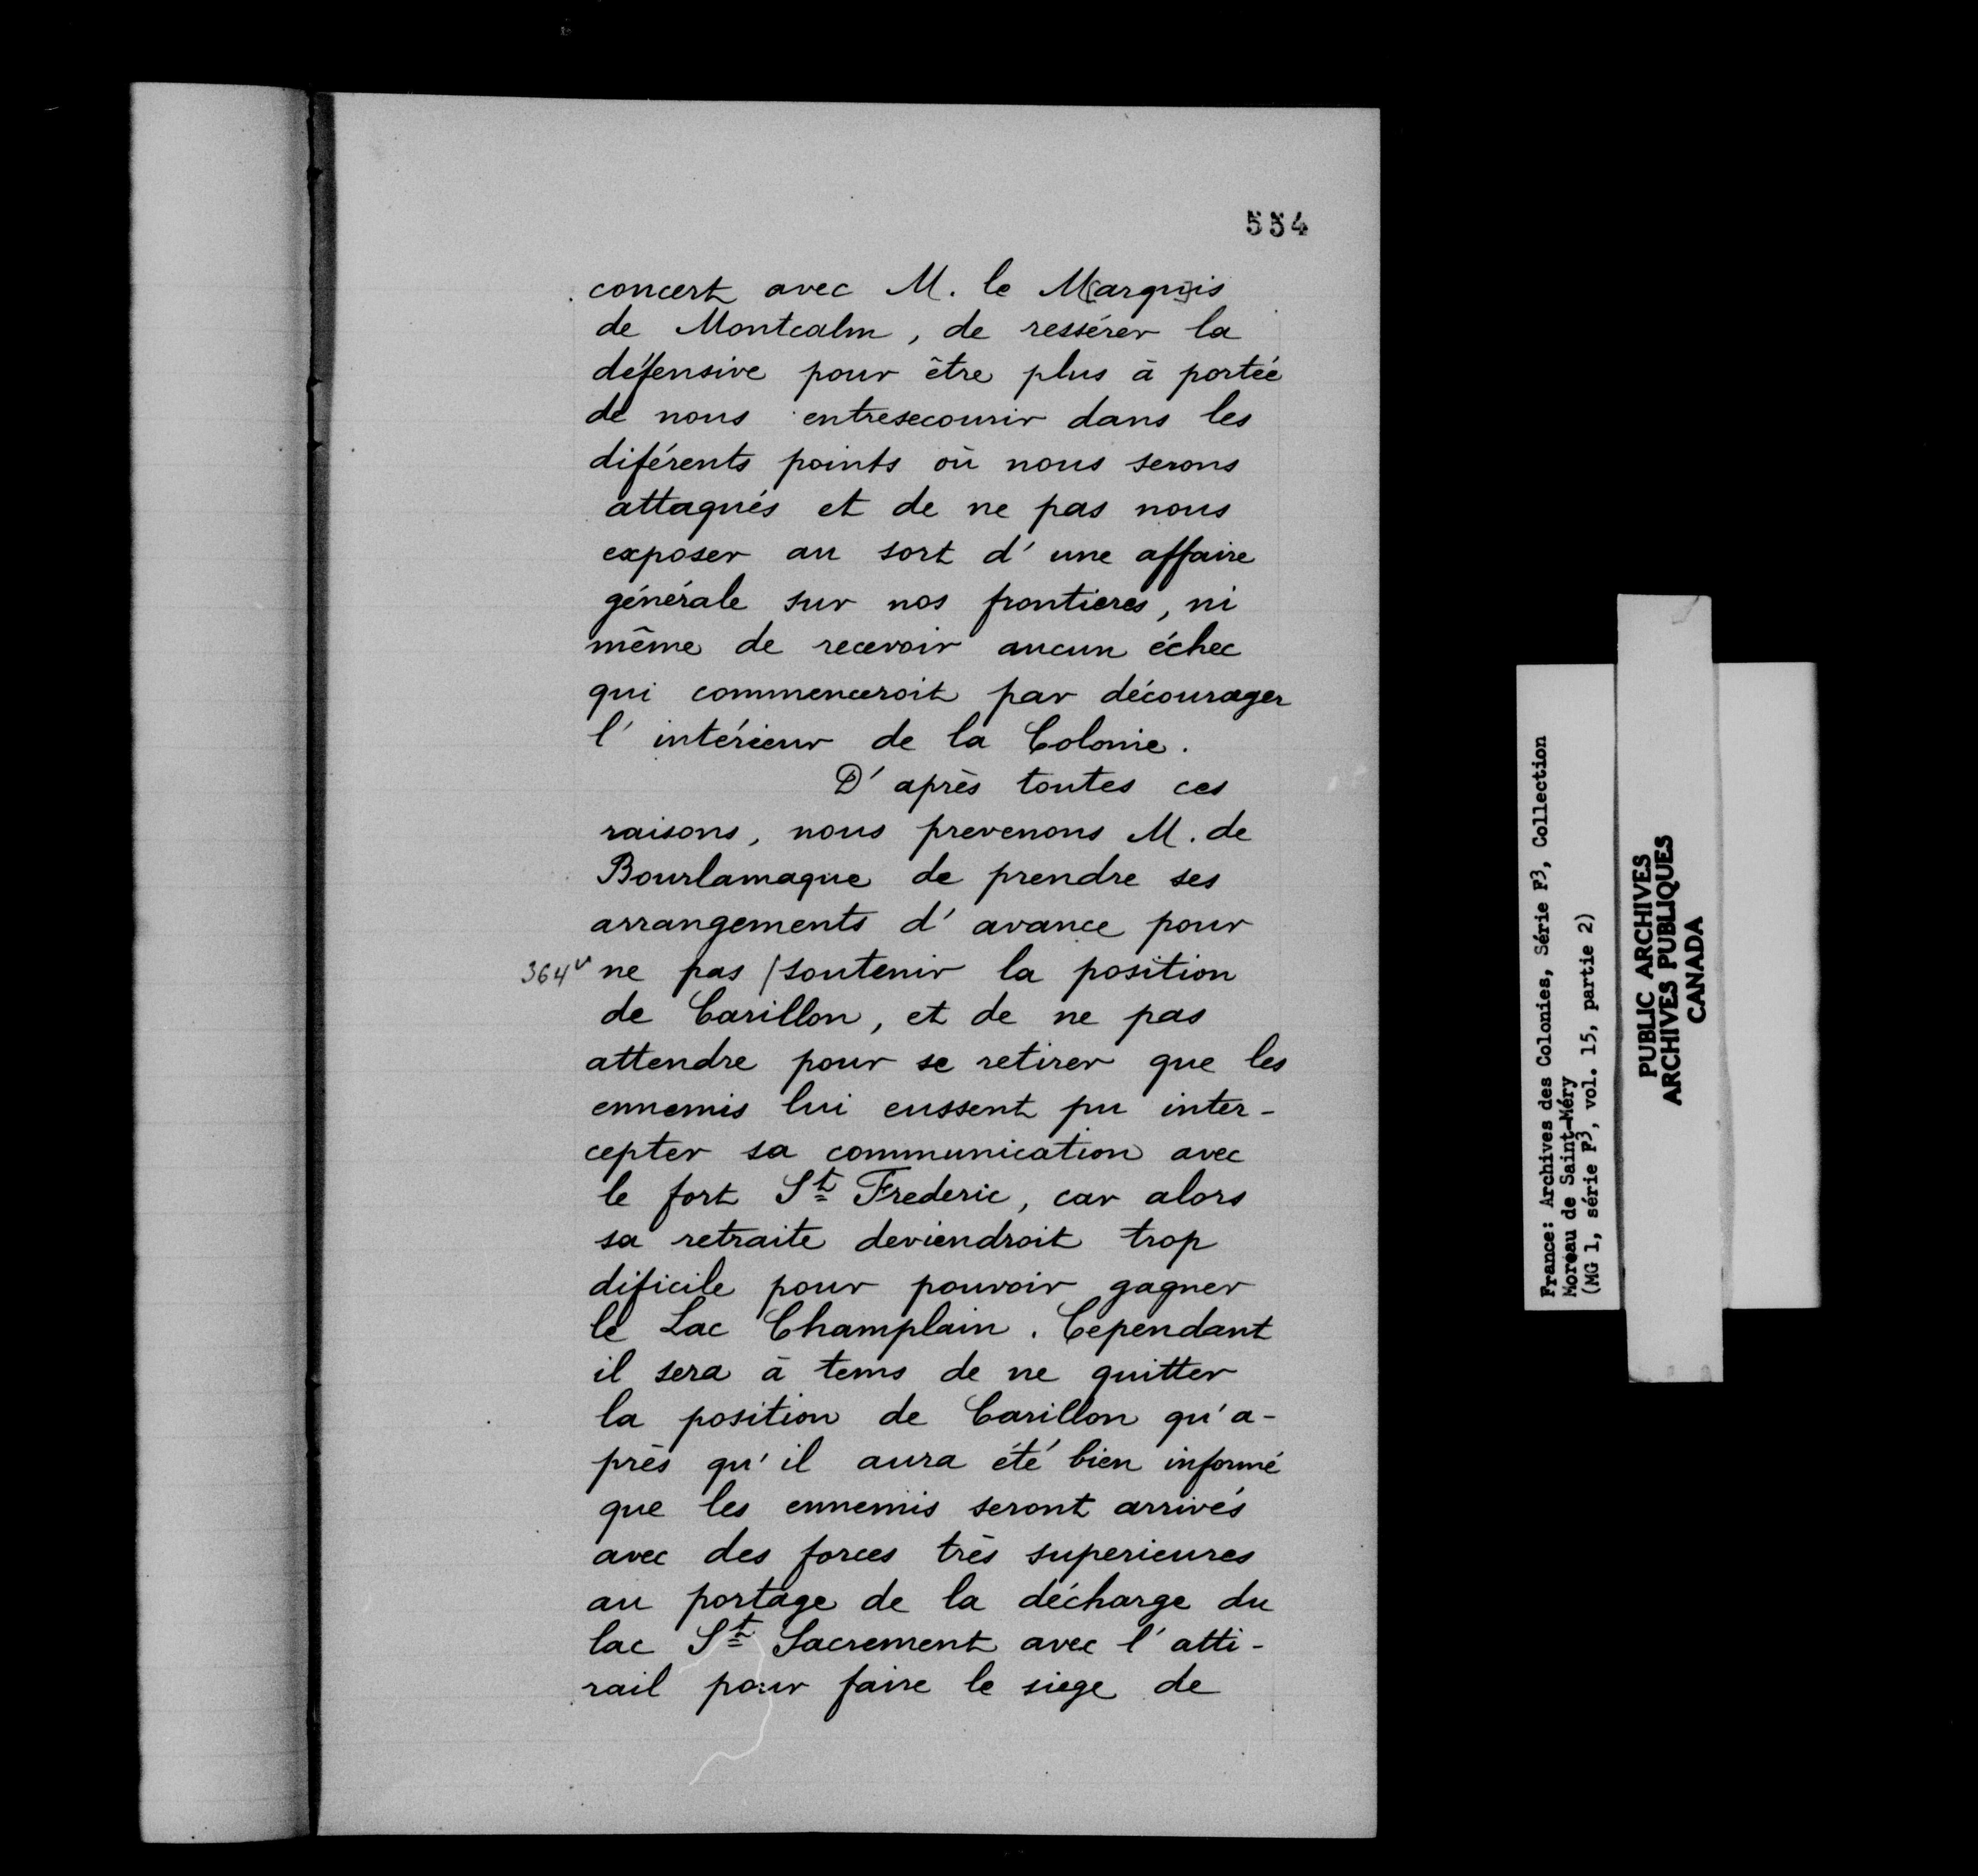 554
concert avec M. le M[arqu]is
de Montcalm, de ressérer la
défensive pour être plus à portée
de nous entresecourir dans les
diférents points où nous serons
attaqués et de ne pas nous
exposer au sort d'une affaire
générale sur nos frontieres, ni
même de recevoir aucun échec
qui commenceroit par décourager
l'intérieur de la Colonie.
D'après toutes ces
raisons, nous prevenons M. de
Bourlamaque de prendre ses
arrangements d'avance pour
364v ne pas /soutenir la position
de Carillon, et de ne pas
attendre pour se retirer que les
ennemis lui eussent pu inter-
cepter sa communication avec
le fort St Frederic, car alors
sa retraite deviendroit trop
dificile pour pouvoir gagner
le Lac Champlain. Cependant
il sera à tems de ne quitter
la position de Carillon qu'a-
près qu'il aura été bien informé
que les ennemis seront arrivés
avec des forces très superieures
au portage de la décharge du
lac St Sacrement avec l'atti-
rail pour faire le siege de
France: Archives des Colonies, Série F3, Collection
Moreau de Saint-Méry
(MG 1, série F3, vol. 15, partie 2)
PUBLIC ARCHIVES
ARCHIVES PUBLIQUES
CANADA